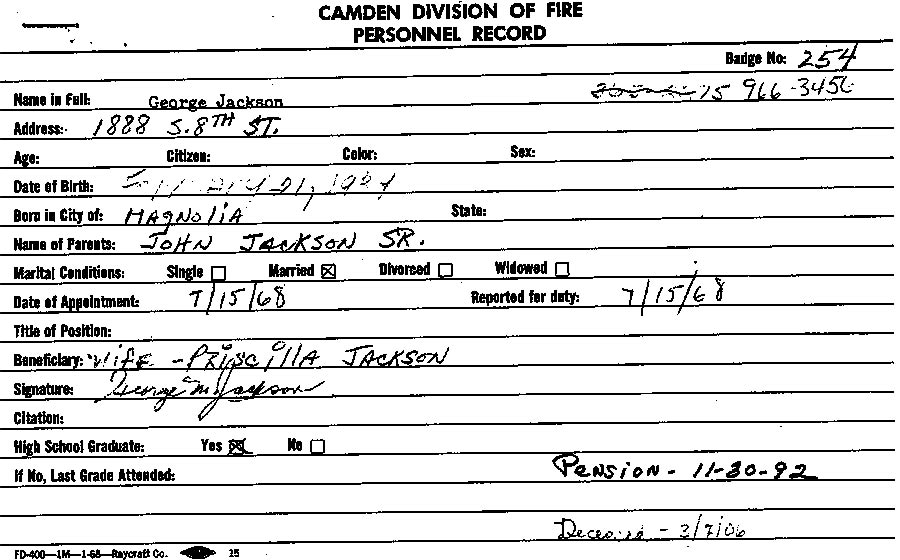 CAMDEN DIVISION OF FIRE
PERSONNEL RECORD
Badge No: 254
Name in Full: George Jackson 966-3456
Address: 1888 S. 8TH ST.
Age: Citizen: Color: Sex:
Date of Birth: 21,
Born in City of: MAGNOLIA State:
Name of Parents: JOHN JACKSON SR.
Marital Conditions: Single Married ☒ Divorced Widowed
Date of Appointment: 7/15/68 Reported for duty: 7/15/68
Title of Position:
Beneficiary: WIFE - PRISCILLA JACKSON
Signature: George M. Jackson
Citation:
High School Graduate: Yes ☒ No
If No, Last Grade Attended: PENSION - 11-30-92
Deceased - 3/7/06
FD-400—1M—1-68—Raycraft Co. 25